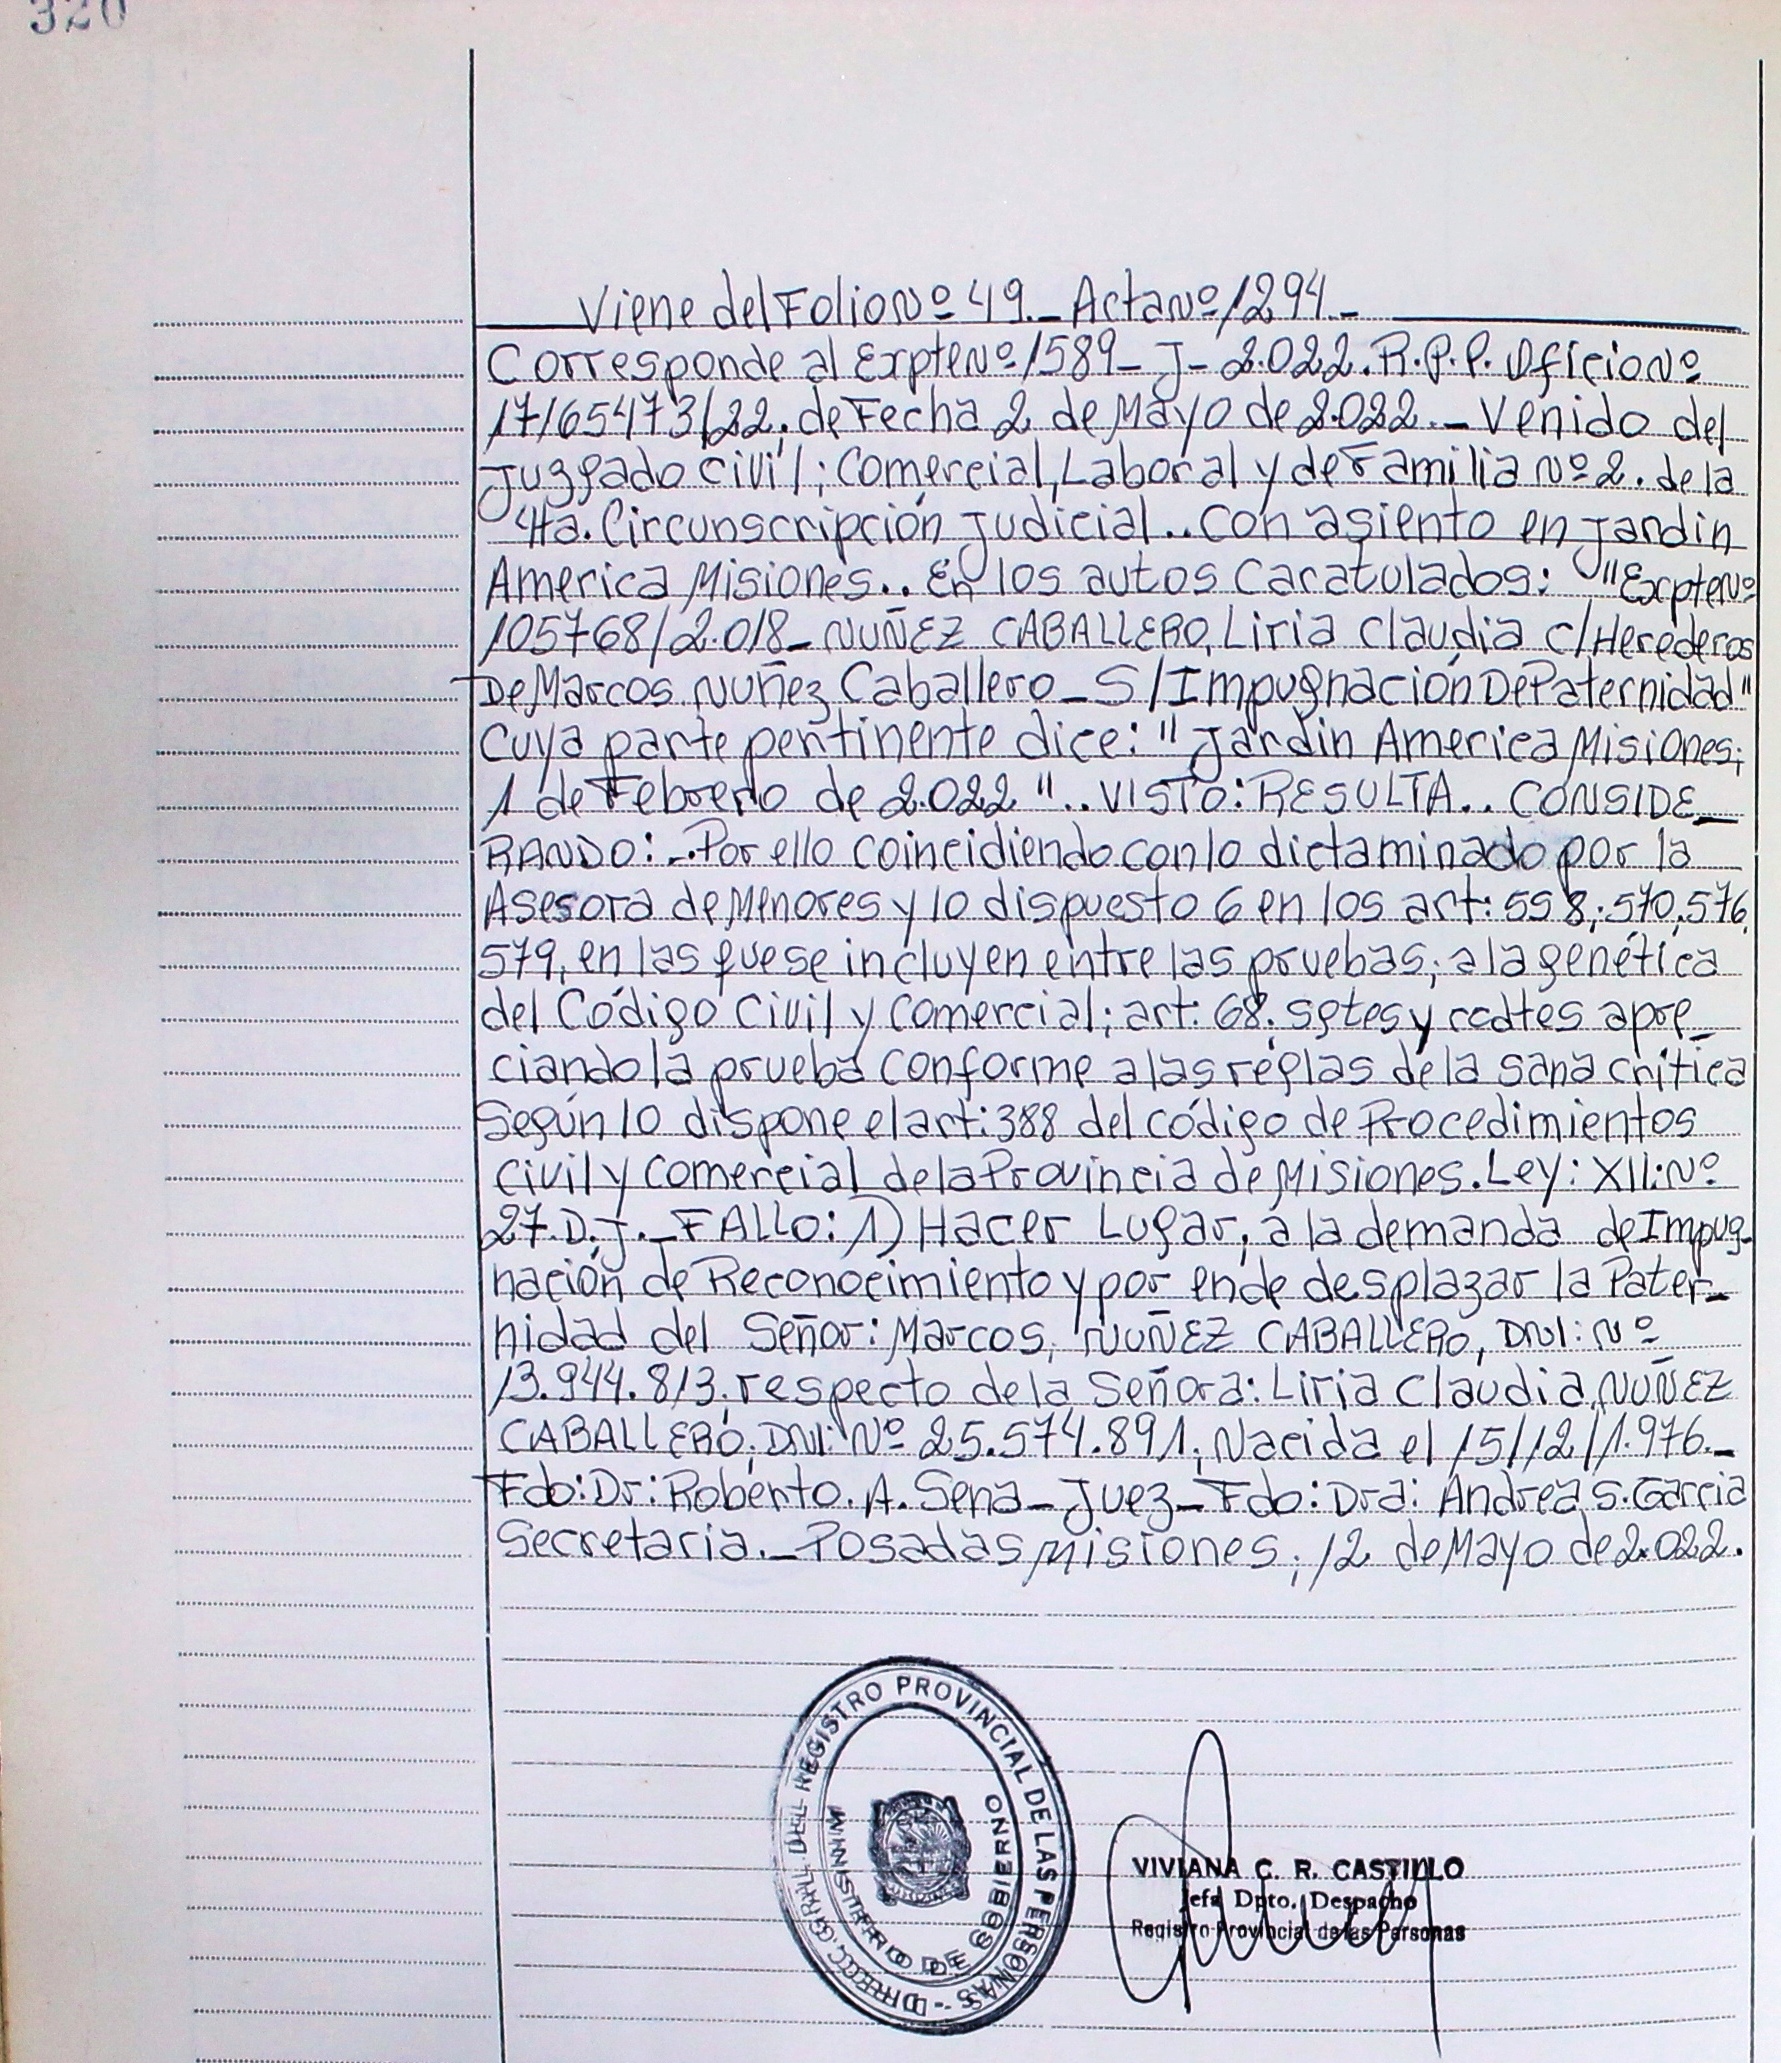 320
Viene del Folio Nº 49._ Acta Nº 1294._
Corresponde al Expte Nº 1589_ J_ 2.022. R.P.P. Oficio Nº
17/65473/22, de Fecha 2 de Mayo de 2.022._ Venido del
Juzgado Civil; Comercial, Laboral y de Familia Nº 2. de la
4ta. Circunscripción Judicial.. con asiento en Jardin
America Misiones.. En los autos Caratulados: "Expte Nº
105768/2.018_ NUÑEZ CABALLERO, Liria Claudia C/Herederos
De Marcos Nuñez Caballero_ S/Impugnación De Paternidad"
Cuya parte pentinente dice: "Jardin America Misiones;
1 de Febrero de 2.022".. VISTO: RESULTA.. CONSIDE_
RANDO:_.Por ello coincidiendo con lo dictaminado por la
Asesora de Menores y lo dispuesto 6 en los art: 558,;570,576,
579, en las que se incluyen entre las pruebas, a la genética
del Código Civil y Comercial; art: 68. sgtes y ccdtes apre_
ciando la prueba conforme a las reglas de la sana crítica
Según lo dispone el art: 388 del código de Procedimientos
Civil y Comercial de la Provincia de Misiones. Ley: XII: Nº
27. D.J._ FALLO: 1) Hacer Lugar, a la demanda de Impug_
nación de Reconocimiento y por ende desplazar la Pater_
nidad del Señor: Marcos, NUÑEZ CABALLERO, DNI: Nº
13.944.813, respecto de la Señora: Liria Claudia, NUÑEZ
CABALLERO, DNI: Nº 25.574.891, Nacida el 15/12/1.976._
Fdo: Dr: Roberto. A. Sena_ Juez_ Fdo: Dra: Andrea S. Garcia
Secretaria._ Posadas Misiones, 12 de Mayo de 2.022.
DIRECC. GRAL. DEL REGISTRO PROVINCIAL DE LAS PERSONAS -
MINISTERIO DE GOBIERNO
VIVIANA C. R. CASTILLO
Jefa Dpto. Despacho
Registro Provincial de las Personas